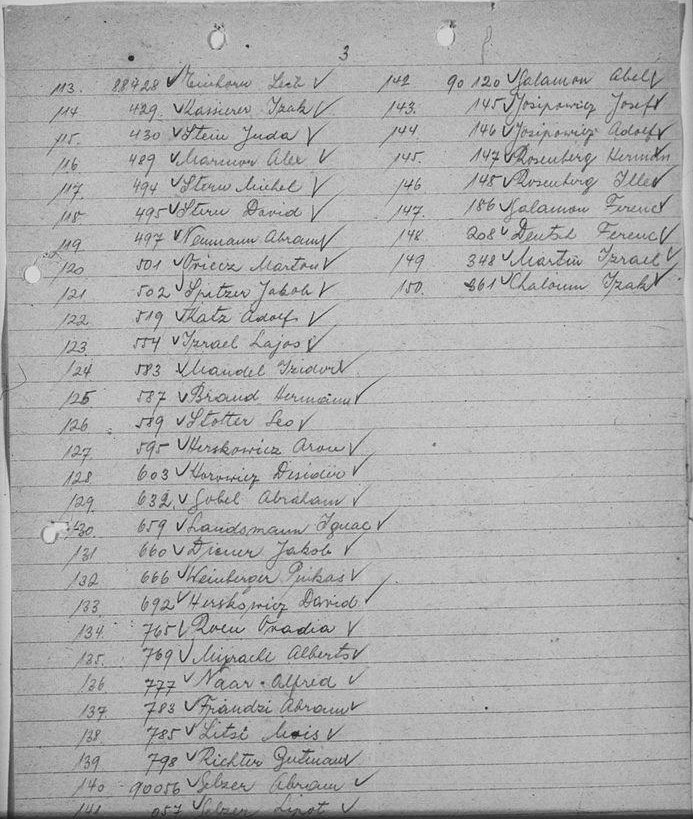 3
113. 88428 Einhorn Leib
114 429. Kassierer Izak
115. 430 Stein Juda
116 489 Marmor Alex
117. 494 Stern Michel
118 495 Stern David
119 497 Neumann Abram
120 501 Marton
121 502 Spitzer Jakob
122. 519 Katz Adolf
123. 554 Izrael Lajos
124 583 Mandel Izidor
125 587 Brand Hermann
126 589 Stotter Leo
127 595 Herskowicz Aron
128. 603 Horowicz Desider
129. 632. Gobel Abraham
130. 659 Landsmann Ignac
131 660 Diener Jakob
132 666 Weinberger Pinkas
133 692 Herskowicz David
134. 765 Ovadia
135. 769 Mizrachi Alberto
136 777 Naar Alfred
137. 783 Frandzi Abram
138 785 Litsi Mois
139 798 Richter Gutman
140 90056 Gelzer Abram
141 057 Gelzer Lipot
142 90 120 Salamon Abel
143. 145 Josipowicz Josef
144 146 Josipowicz Adolf
145. 147 Rosenberg Herman
146 148 Rosenberg
147. 186 Salamon Ferenc
148. 208 Deutsch Ferenc
149 348 Martin Izrael
150. 361 Chaloum Izak